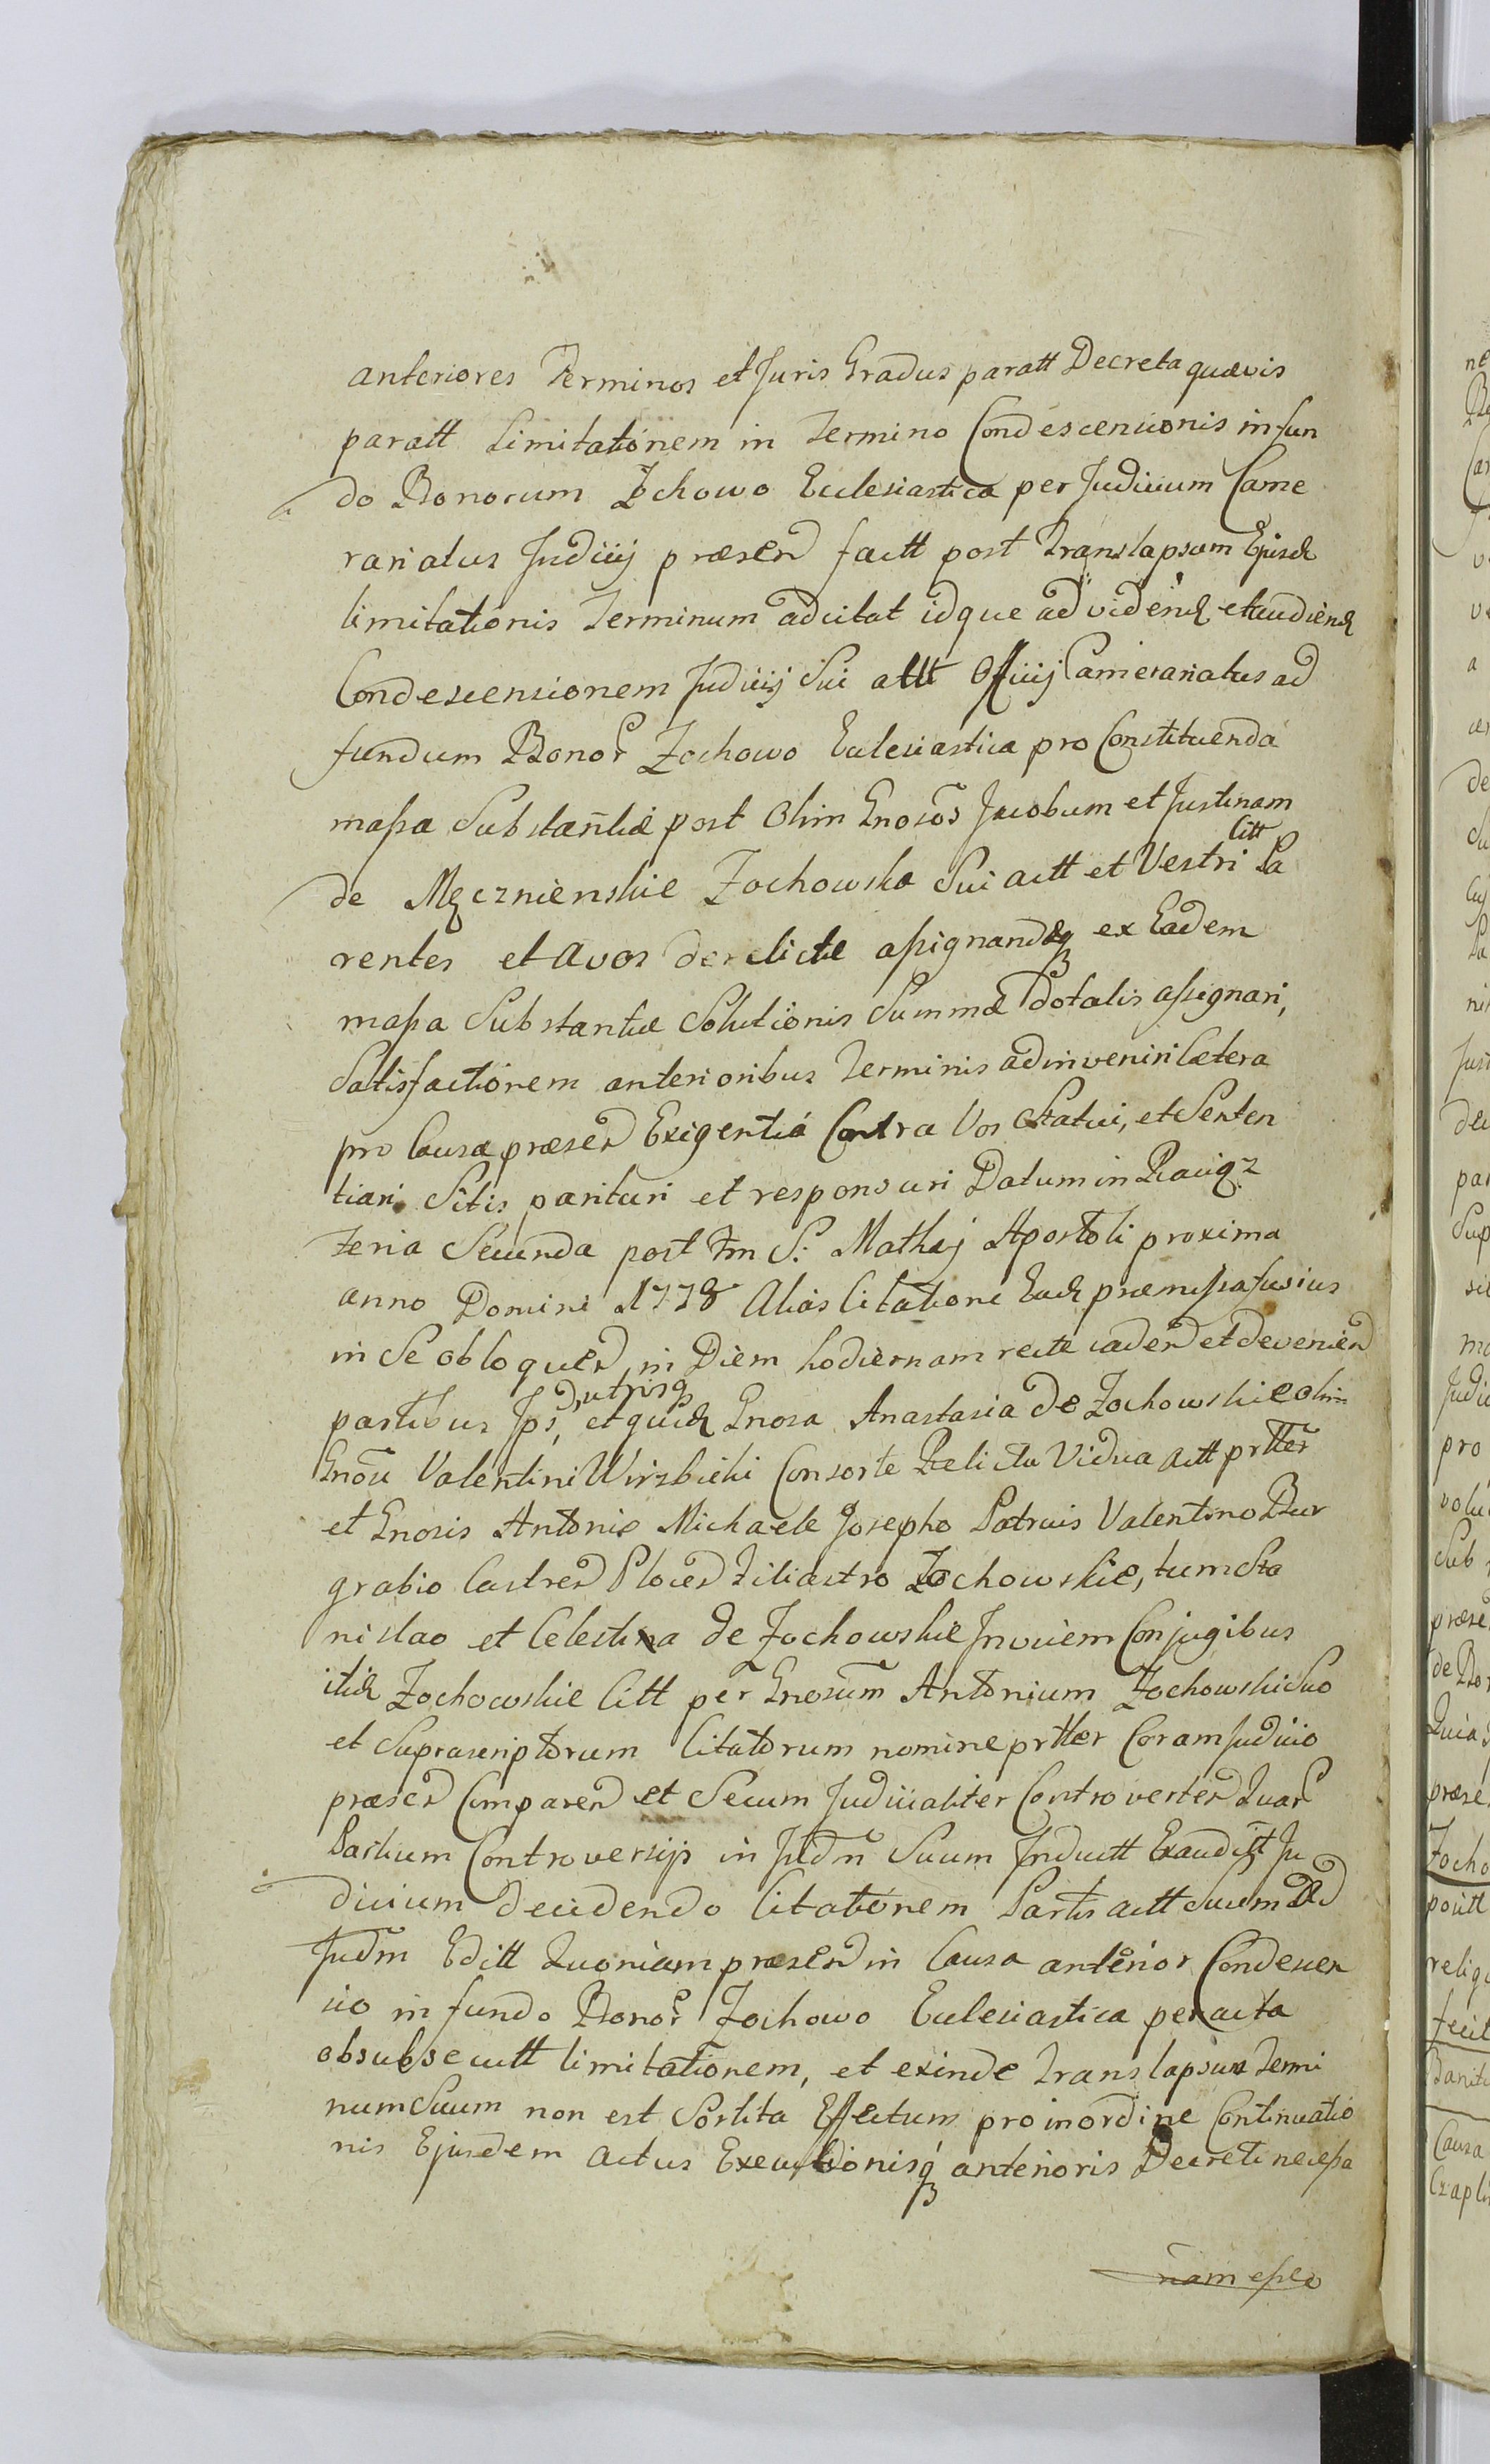 anteriores Terminos et Juris Gradus paratt Decreta quævis
paratt Limitationem in Termino Condescensionis in fun
do Bonorum Zochowo Ecclesiastica per Judicium Came
rariatus Judicij præsen factt post Translapsum Ejusd
limitationis Terminum adcitat idque ad videnḋ et audiend
Condescensionem Judicij Sui allt Officij Camerariatus ad
fundum Bonor Zochowo Ecclesiastica pro Constituenda
massa Substantiæ post Olim Gnosos Jacobum et Justinam
de Męcznienskie Zochowska Sui actt et Vestri Citt Pa
rentes et Avos derelictæ assignandæq ex Eadem
massa Substantiæ Solutionis Summæ Dotalis assignari,
Satisfactionem anterioribus Terminis adinveniri Cætera
pro Causæ præsen Exigentiá Contra Vos Statui, et Senten
tiari Sitis parituri et responsuri Datum in Raciąz
Feria Secunda post Fm S: Mathæj Apostoli proxima
anno Domini 1778 Alias Citatione Ead præmissa fusius
in Se obloquen, in Diem hodiernam recte caden et devenien
partibus Jps, utrisq et quid Gnosa Anastasia de Zochowskie olim
Gnosi Valentini Wirzbicki Consorte Relicta Vidua actt prtter
et Gnosis Antonio Michaele Josepho Patruis Valentino Bur
grabio Castren Plocen Filiastro Zochowskie, tum Sta
nislao et Celestina de Zochowskie Invicem Conjugibus
itid Zochowskie Citt per Gnosum Antonium Zochowski Suo
et Suprascriptorum Citatorum nomine prtter Coram Judicio
præsen Comparen et Secum Judicialiter Controverten Quar
Partium Controversijs in Judm Suum Inductt Exauditt Ju
dicium decidendo Citationem Partis actt Suum Ad
Judm Editt Quoniam præsen in Causa anterior Condescen
sio in fundo Bonor Zochowo Ecclesiastica peracta
ob subsecutt limitationem, et exinde Translapsum Termi
num Suum non est Sortita Effectum pro inordine Continuatio
nis Ejusdem actus Executionisq anterioris Decreti necessa
nam esse